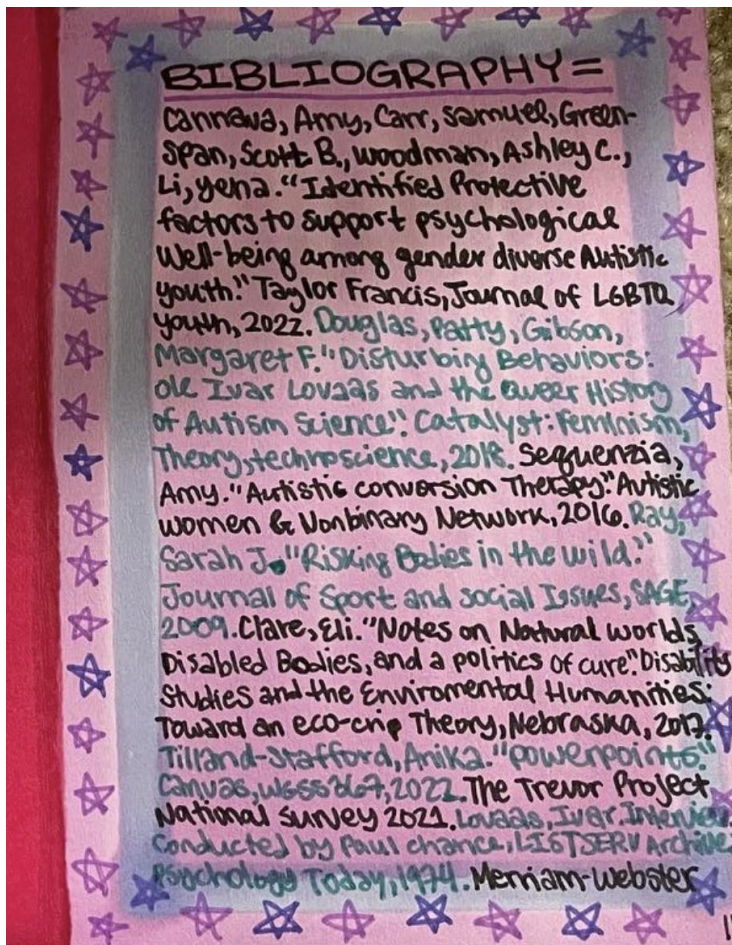 BIBLIOGRAPHY=
Cannava, Amy, Carr, Samuel, Green-
span, Scott B., Woodman, Ashley C.,
Li, Yena. "Identified Protective
factors to support psychological
Well-being among gender diverse Autistic
youth." Taylor Francis, Journal of LGBTQ
youth, 2022. Douglas, Patty, Gibson,
Margaret F. "Disturbing Behaviors:
Ole Ivar Lovaas and the Queer History
of Autism Science". Catalyst: Feminism,
Theory, technoscience, 2018. Sequenzia,
Amy. "Autistic conversion Therapy." Autistic
women & Nonbinary Network, 2016. Ray,
Sarah J. "Risking Bodies in the wild."
Journal of Sport and social Issues, SAGE,
2009. Clare, Eli. "Notes on Natural worlds,
Disabled Bodies, and a politics of cure." Disability
Studies and the Enviromental Humanities:
Toward an eco-crip Theory, Nebraska, 2017.
Tilland-Stafford, Anika. "powerpoints."
Canvas, WGSS 367, 2022. The Trevor Project
National survey 2021. Lovaas, Ivar. Interview.
Conducted by Paul chance, LISTSERV Archive
Psychology Today, 1974. Merriam-Webster